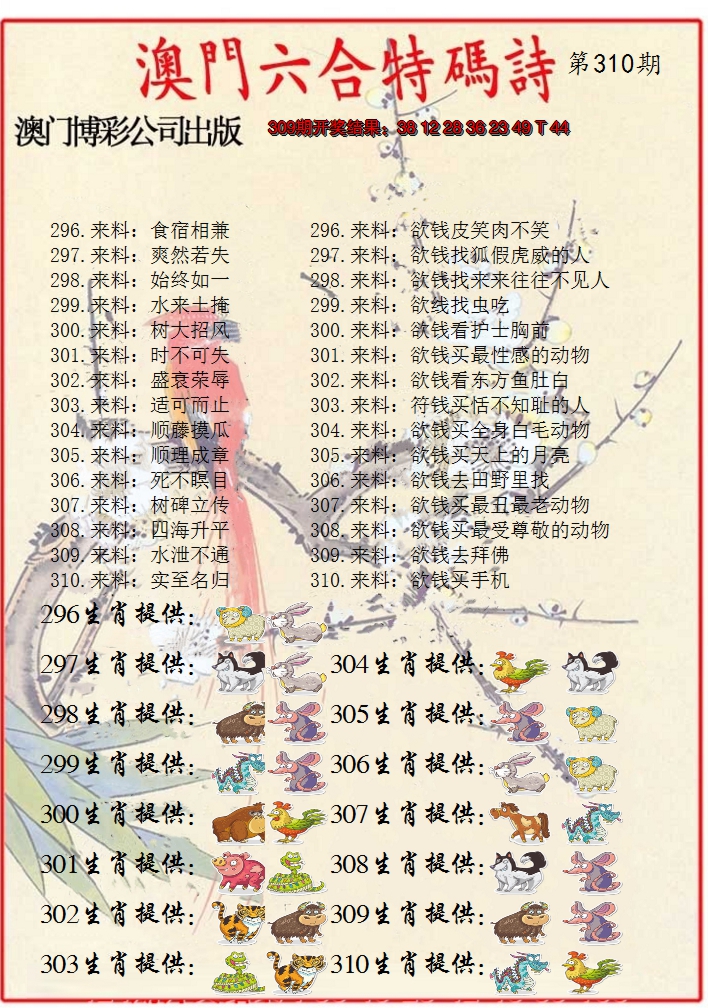 澳門六合特碼詩 第310期
澳门博彩公司出版 309期开奖结果：38 12 28 36 23 49 T 44
296.来料：食宿相兼 296.来料：欲钱皮笑肉不笑
297.来料：爽然若失 297.来料：欲钱找狐假虎威的人
298.来料：始终如一 298.来料：欲钱找来来往往不见人
299.来料：水来土掩 299.来料：欲线找虫吃
300.来料：树大招风 300.来料：欲钱看护士胸前
301.来料：时不可失 301.来料：欲钱买最性感的动物
302.来料：盛衰荣辱 302.来料：欲钱看东方鱼肚白
303.来料：适可而止 303.来料：符钱买恬不知耻的人
304.来料：顺藤摸瓜 304.来料：欲钱买全身白毛动物
305.来料：顺理成章 305.来料：欲钱买天上的月亮
306.来料：死不瞑目 306.来料：欲钱去田野里找
307.来料：树碑立传 307.来料：欲钱买最丑最老动物
308.来料：四海升平 308.来料：欲钱买最受尊敬的动物
309.来料：水泄不通 309.来料：欲钱去拜佛
310.来料：实至名归 310.来料：欲钱买手机
296生肖提供：
297生肖提供： 304生肖提供：
298生肖提供： 305生肖提供：
299生肖提供： 306生肖提供：
300生肖提供： 307生肖提供：
301生肖提供： 308生肖提供：
302生肖提供： 309生肖提供：
303生肖提供： 310生肖提供：